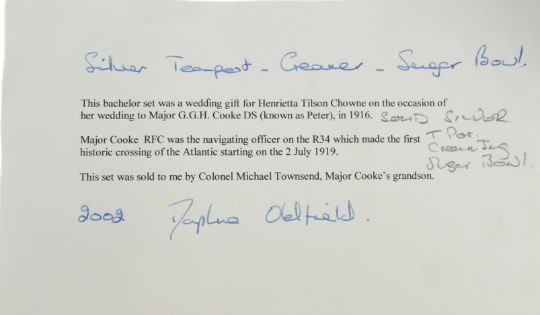 Silver Teapost - Creamer - Suger Bowl.
This bachelor set was a wedding gift for Henrietta Tilson Chowne on the occasion of
her wedding to Major G.G.H. Cooke DS (known as Peter), in 1916. SOLID SILVER
Major Cooke RFC was the navigating officer on the R34 which made the first T Pot.
historic crossing of the Atlantic starting on the 2 July 1919. Cream Jug
Suger Bowl.
This set was sold to me by Colonel Michael Townsend, Major Cooke's grandson.
2002 Daphne Oldfield.